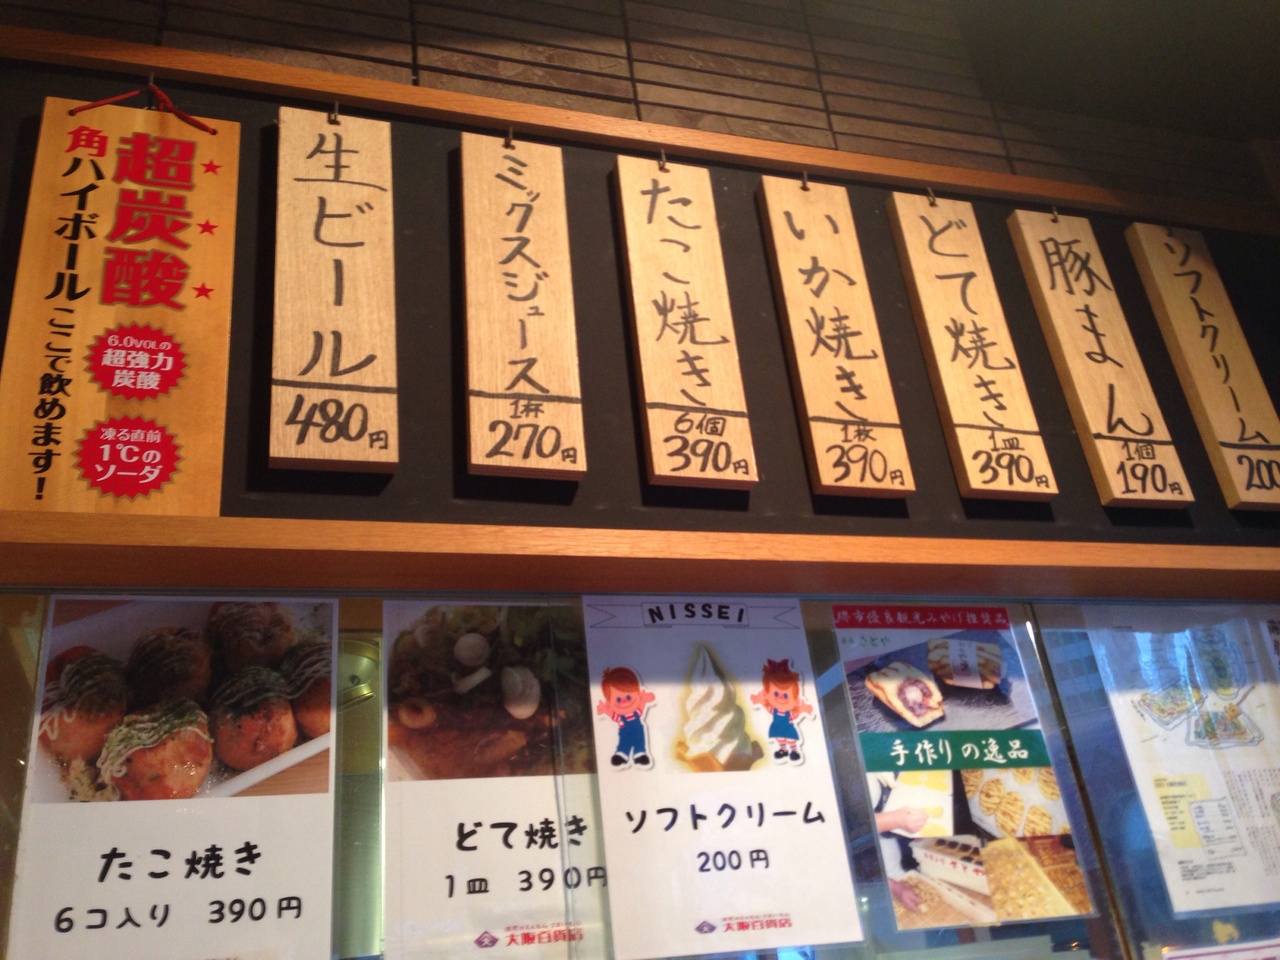 超炭酸
角ハイボールここで飲めます!
6.0VOLの
超強力
炭酸
凍る直前
1℃の
ソーダ
生ビール
480円
ミックスジュース
1杯
270円
たこ焼き
6個
390円
いか焼き
1枚
390円
どて焼き
1皿
390円
豚まん
1個
190円
ソフトクリーム
200
たこ焼き
6コ入り 390円
どて焼き
1皿 390円
大阪百貨店
NISSEI
ソフトクリーム
200円
大阪百貨店
堺市優良観光みやげ推奨品
手作りの逸品